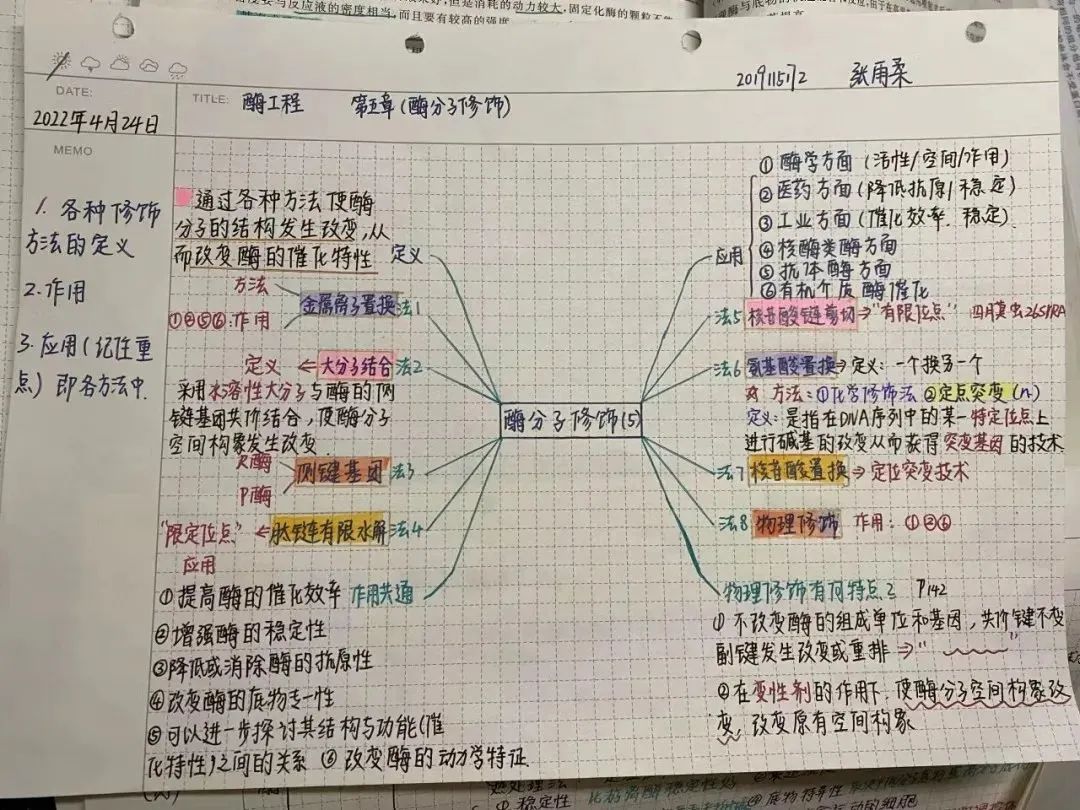 要与反应液的密度相当,而且要有较高的强度
但是消耗的动力较大,固定化酶的颗粒不
DATE:
2022年4月24日
TITLE: 酶工程 第五章(酶分子修饰)
2019115172 张雨柔
MEMO
1. 各种修饰
方法的定义
2. 作用
3. 应用(记性重
点) 即各方法中.
通过各种方法使酶
分子的结构发生改变,从
而改变酶的催化特性 定义
方法
金属离子置换 法1
①②⑤⑥:作用
定义 ← 大分子结合 法2
采用水溶性大分子与酶的侧
链基团共价结合,使酶分子
空间构象发生改变.
侧链基团 法3
P酶
“限定位点” ← 肽链有限水解 法4
应用
①提高酶的催化效率 作用共通
②增强酶的稳定性
③降低或消除酶的抗原性
④改变酶的底物专一性
⑤可以进一步探讨其结构与功能(催
化特性)之间的关系 ⑥ 改变酶的动力学特征
酶分子修饰(5)
应用
① 酶学方面 (活性/空间/作用)
② 医药方面(降低抗原/稳定)
③ 工业方面(催化效率.稳定)
④ 核酶类酶方面
⑤ 抗体酶方面
⑥ 有机介质酶催化
法5 核苷酸链剪切 ⇒ “有限位点” 四膜虫26S rRNA
法6 氨基酸置换 ⇒ 定义: 一个换另一个
方法: ①化学修饰法 ②定点突变(n)
定义: 是指在DNA序列中的某一特定位点上
进行碱基的改变从而获得突变基因的技术
法7 核苷酸置换 ⇒ 定位突变技术
法8 物理修饰 作用: ①②⑥
物理修饰有何特点? P142
① 不改变酶的组成单位和基团,共价键不变
副键发生改变或重排 ⇒ “ ”
② 在变性剂的作用下,使酶分子空间构象改
变,改变原有空间构象